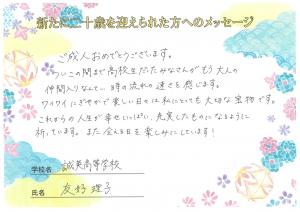 新たに二十歳を迎えられた方へのメッセージ
ご成人おめでとうございます。
ついこの間まで高校生だったみなさんがもう大人の
仲間入りなんて…時の流れの速さを感じます。
ワイワイにぎやかで楽しい日々は私にとっても大切な宝物です。
これからの人生が幸せいっぱい、充実したものになるように
祈っています。また会える日を楽しみにしています！
学校名 誠英高等学校
氏名 友好 理子